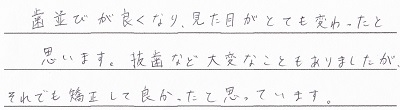 歯並びが良くなり、見た目がとても変わったと
思います。抜歯など大変なこともありましたが、
それでも矯正して良かったと思っています。